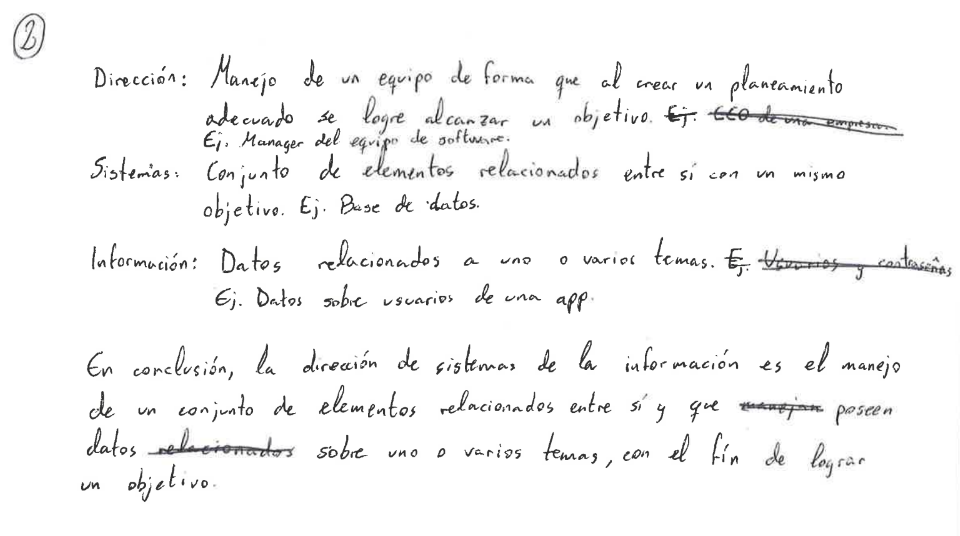 2
Dirección: Manejo de un equipo de forma que al crear un planeamiento
adecuado se logre alcanzar un objetivo. Ej. CEO de una empresa.
Ej. Manager del equipo de software.
Sistemas: Conjunto de elementos relacionados entre sí con un mismo
objetivo. Ej. Base de datos.
Información: Datos relacionados a uno o varios temas. Ej. Usuarios y contraseñas
Ej. Datos sobre usuarios de una app.
En conclusión, la direción de sistemas de la información es el manejo
de un conjunto de elementos relacionados entre sí y que manejan poseen
datos relacionados sobre uno o varios temas, con el fín de lograr
un objetivo.